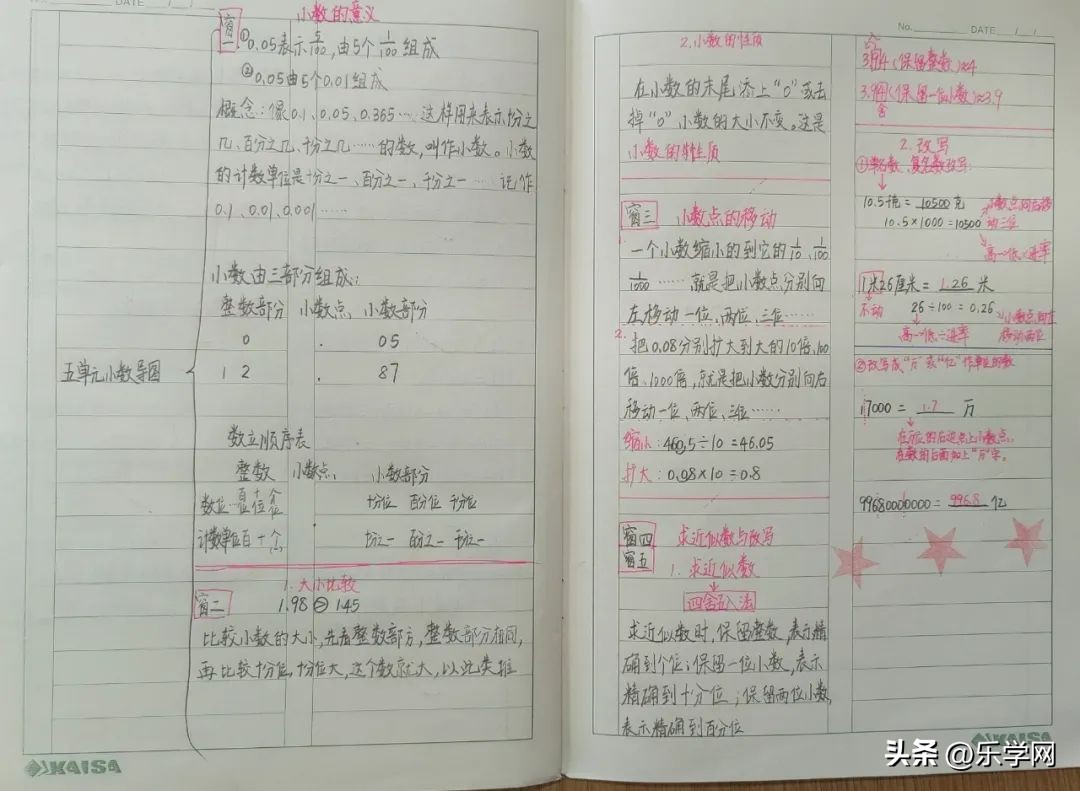 DATE
小数的意义
窗一 ①0.05表示5/100,由5个1/100组成
②0.05由5个0.01组成
概念:像0.1、0.05、0.365…这样用来表示十分之
几、百分之几、千分之几……的数,叫作小数。小数
的计数单位是十分之一、百分之一、千分之一……记作
0.1、0.01、0.001……
小数由三部分组成:
整数部分 小数点 小数部分
0 . 05
12 . 87
五单元小数导图
数位顺序表
整数 小数点 小数部分
数位…百位十位个位 十分位 百分位 千分位
计数单位百十个 . 十分之一 百分之一 千分之一
1.大小比较
窗二 1.98>1.45
比较小数的大小,先看整数部方,整数部分相同,
再比较十分位,十分位大,这个数就大,以此类推
KAISA
2.小数的性质
在小数的末尾添上“0”或去
掉“0”小数的大小不变。这是
小数的性质
窗三 小数点的移动
1.
一个小数缩小的到它的1/10、1/100、
1/1000……就是把小数点分别向
左移动一位、两位、三位……
2.
把0.08分别扩大到大的10倍、100
倍、1000倍,就是把小数分别向右
移动一位、两位、三位……
缩小:460.5÷10=46.05
扩大:0.08×10=0.8
窗四 求近似数与改写
窗五 1.求近似数
四舍五入法
求近似数时,保留整数,表示精
确到个位;保留一位小数,表示
精确到十分位;保留两位小数,
表示精确到百分位
No. DATE
3.94(保留整数)≈4
3.94(保留一位小数)≈3.9
舍
2.改写
①单名数、复名数改写
10.5千克=10500克 小数点向右移
10.5×1000=10500 动三位
高→低×进率
1米26厘米=1.26米
不动 26÷100=0.26 小数点向左
高→低÷进率 移动两位
②改写成“万”或“亿”作单位的数
17000=1.7万
在万位的右边点上小数点,
在数的后面加上“万”字。
99680000000=996.8亿
KAISA
头条 @乐学网